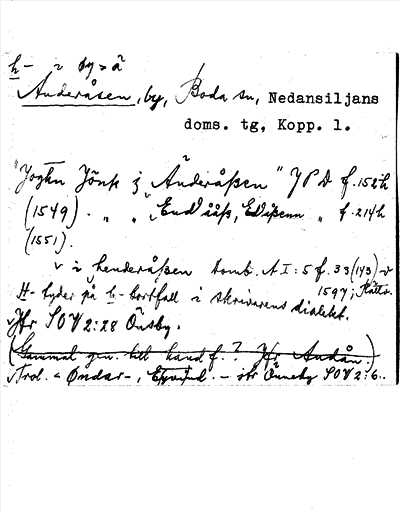 h- ~ öy > ä
Anderåsen, by, Boda sn, Nedansiljans
doms. tg, Kopp. l.
"Joghn Jönß j Änderåßen" JPD f. 152 h
(1549). " " End ååß, Edåßenn " f. 214 h
(1551).
v i henderåßen tomb. A I:5 f. 33 (143) v
1597; Rättv.
H- tyder på h-bortfall i skrivarens dialekt.
v Jfr SOV 2:28 Önsby.
(Gammal gen. till hand f.? Jfr Andån.)
v Trol. < Öndar-, Eyvind. - jfr Önneby SOV 2:6..